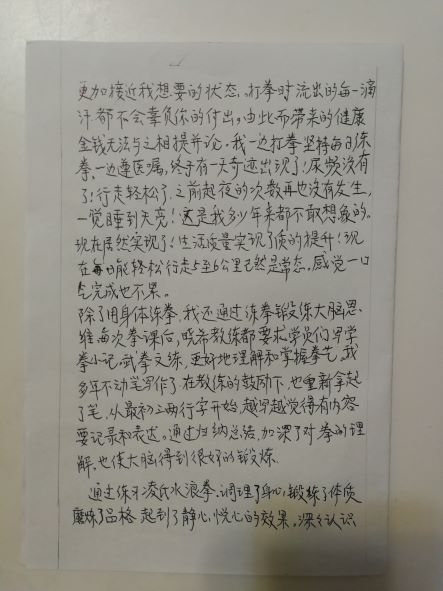 更加接近我想要的状态。打拳时流出的每一滴
汗都不会辜负你的付出。由此而带来的健康
金钱无法与之相提并论。我一边打拳坚持每日练
拳、一边遵医嘱,终于有一天奇迹出现了!尿频没有
了!行走轻松了、之前起夜的次数再也没有发生,
一觉睡到天亮!这是我多少年来都不敢想象的。
现在居然实现了!生活质量实现了质的提升!现
在每日能轻松行走5至6公里已然是常态。感觉一口
气完成也不累。
除了用身体练拳,我还通过练拳锻练大脑思
维每次拳课后,晓希教练都要求学员们写学
拳小记。武拳文练,更好地理解和掌握拳艺。我
多年不动笔写作了。在教练的鼓励下,也重新拿起
了笔,从最初三两行字开始,越写越觉得有内容
要记录和表达。通过归纳总结,加深了对拳的理
解,也使大脑得到很好的锻炼。
通过练习凌氏水浪拳、调理了身心,锻练了体质
磨炼了品格 起到了静心、悦心的效果。深々认识